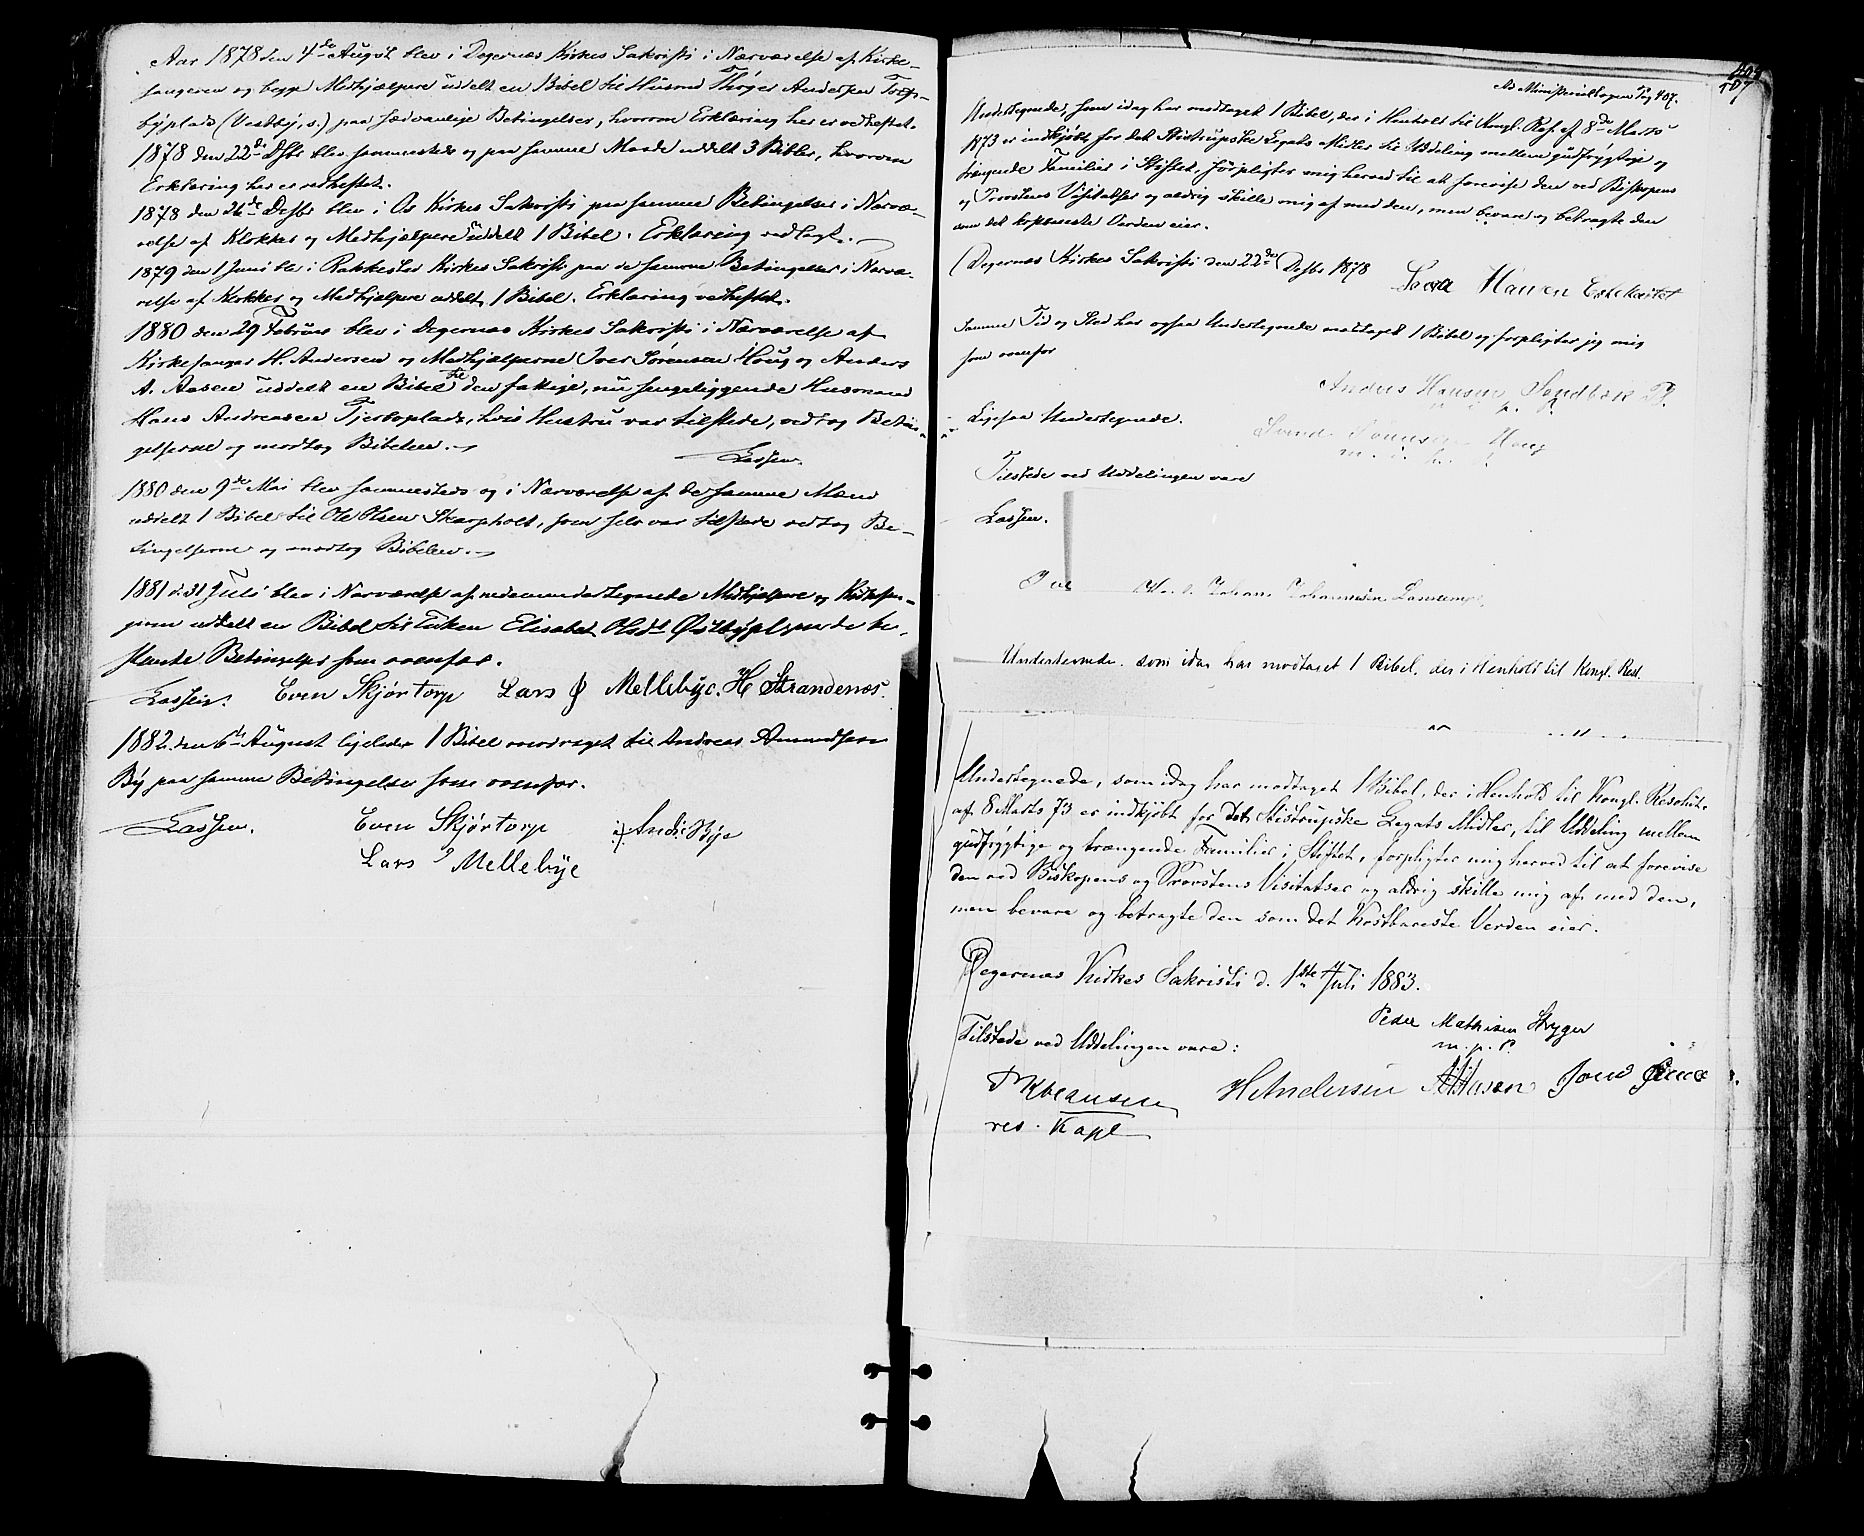 Aar 1878 den 4de August blev i Degernæs Kirkes Sakristi i Nærværelse af Kirke-
sangeren og begge Medhjælpere uddelt en Bibel til Husmd Thøger Andersen
byplads (Vestby, s.) paa sædvanlige Betingelser, hvorom Erklæring her er vedheftet.
1878 den 22de Dsbr blev sammesteds og paa samme Maade uddelt 3 Bibler, hvorom
Erklæring her er vedheftet.
1878 den 26de Desbr blev i Os Kirkes Sakristi paa samme Betingelser i Nærvæ-
relse af Klokker og Medhjælpere uddelt 1 Bibel. Erklæring vedlagt.
1879 den 1 Juni blev i Rakkestad Kirkes Sakristi paa de samme Betingelser i Nærvæ-
relse af Klokker og Medhjælpere uddelt 1 Bibel. Erklæring vedheftet.
1880 den 29 Februar blev i Degernæs Kirkes Sakristi i Nærværelse af
Kirkesanger H. Andersen og Medhjælperne Iver Sørensen Houg og Anders
A. Aasen uddelt en Bibel til den fattige, nu sengeliggende Husmand
Hans Andreassen Tjerboplads, hvis Hustru var tilstede, vedtog Betin-
gelserne og modtog Bibelen.
Lassen.
1880 den 9de Mai blev sammesteds og i Nærværelse af de samme Mænd
uddelt 1 Bibel til Ole Olsen Skarpholt, som selv var tilstede vedtog Be-
tingelserne og modtog Bibelen.
1881 d. 31 Juli blev i Nærværelse af nedenundertegnede Medhjælpere og Kirkesan-
geren uddelt en Bibel til Enken Elisabet Olsdt Østbypl. paa de be-
stemte Betingelser som ovenfor.
Lassen. Even Skjørtorp Lars J Mellebye. H Strandenæs.
1882 den 6te August ligeledes 1 Bibel overdraget til Andreas Amundsen
By paa samme Betingelser som ovenfor.
Lassen. Even Skjørtorp Andr. Bye
Lars J Mellebye
407
Ad Ministerialbogen Pag 407.
Undertegnede, som idag har modtaget 1 Bibel, der i Henhold til Kongl. Res. af 8de Marts
1873 er indkjøbt for det Stistrupske Legats Midler til Uddeling mellem gudfrygtige og
trængende Familier i Stiftet, forpligter mig herved til at forevise den ved Biskopens
og Provstens Visitatser og aldrig skille mig af med den, men bevare og betragte den
som det kostbareste Verden eier.
Degernæs Kirkes Sakristi den 22de Desbr 1878
Hansen
Samme Tid og Sted har ogsaa Undertegnede modtaget 1 Bibel og forpligter jeg mig
som ovenfor
Anders Hansen Sandbæk
m. p. P.
Ligesaa Undertegnede.
Svend Houg
Tilstede ved Uddelingen vare
Lassen.
Johans Johannesen
Undertegnede, som idag har modtaget 1 Bibel, der i Henhold til Kongl. Resl.
Undertegnede, som idag har modtaget 1 Bibel, der i Henhold til Kongl. Resolut.
af 8 Marts 73 er indkjøbt for det Stistrupske Legats Midler, til Uddeling mellem
gudfrygtige og trængende Familier i Stiftet, forpligter mig herved til at forevise
den ved Biskopens og Provstens Visitatser og aldrig skille mig af med den,
men bevare og betragte den som det Kostbareste Verden eier.
Degernæs Kirkes Sakristi d. 1ste Juli 1883.
Peder Mathisen Stryger
m. p. P.
Tilstede ved Uddelingen vare:
H Andersen A A Aasen
res. Kapl